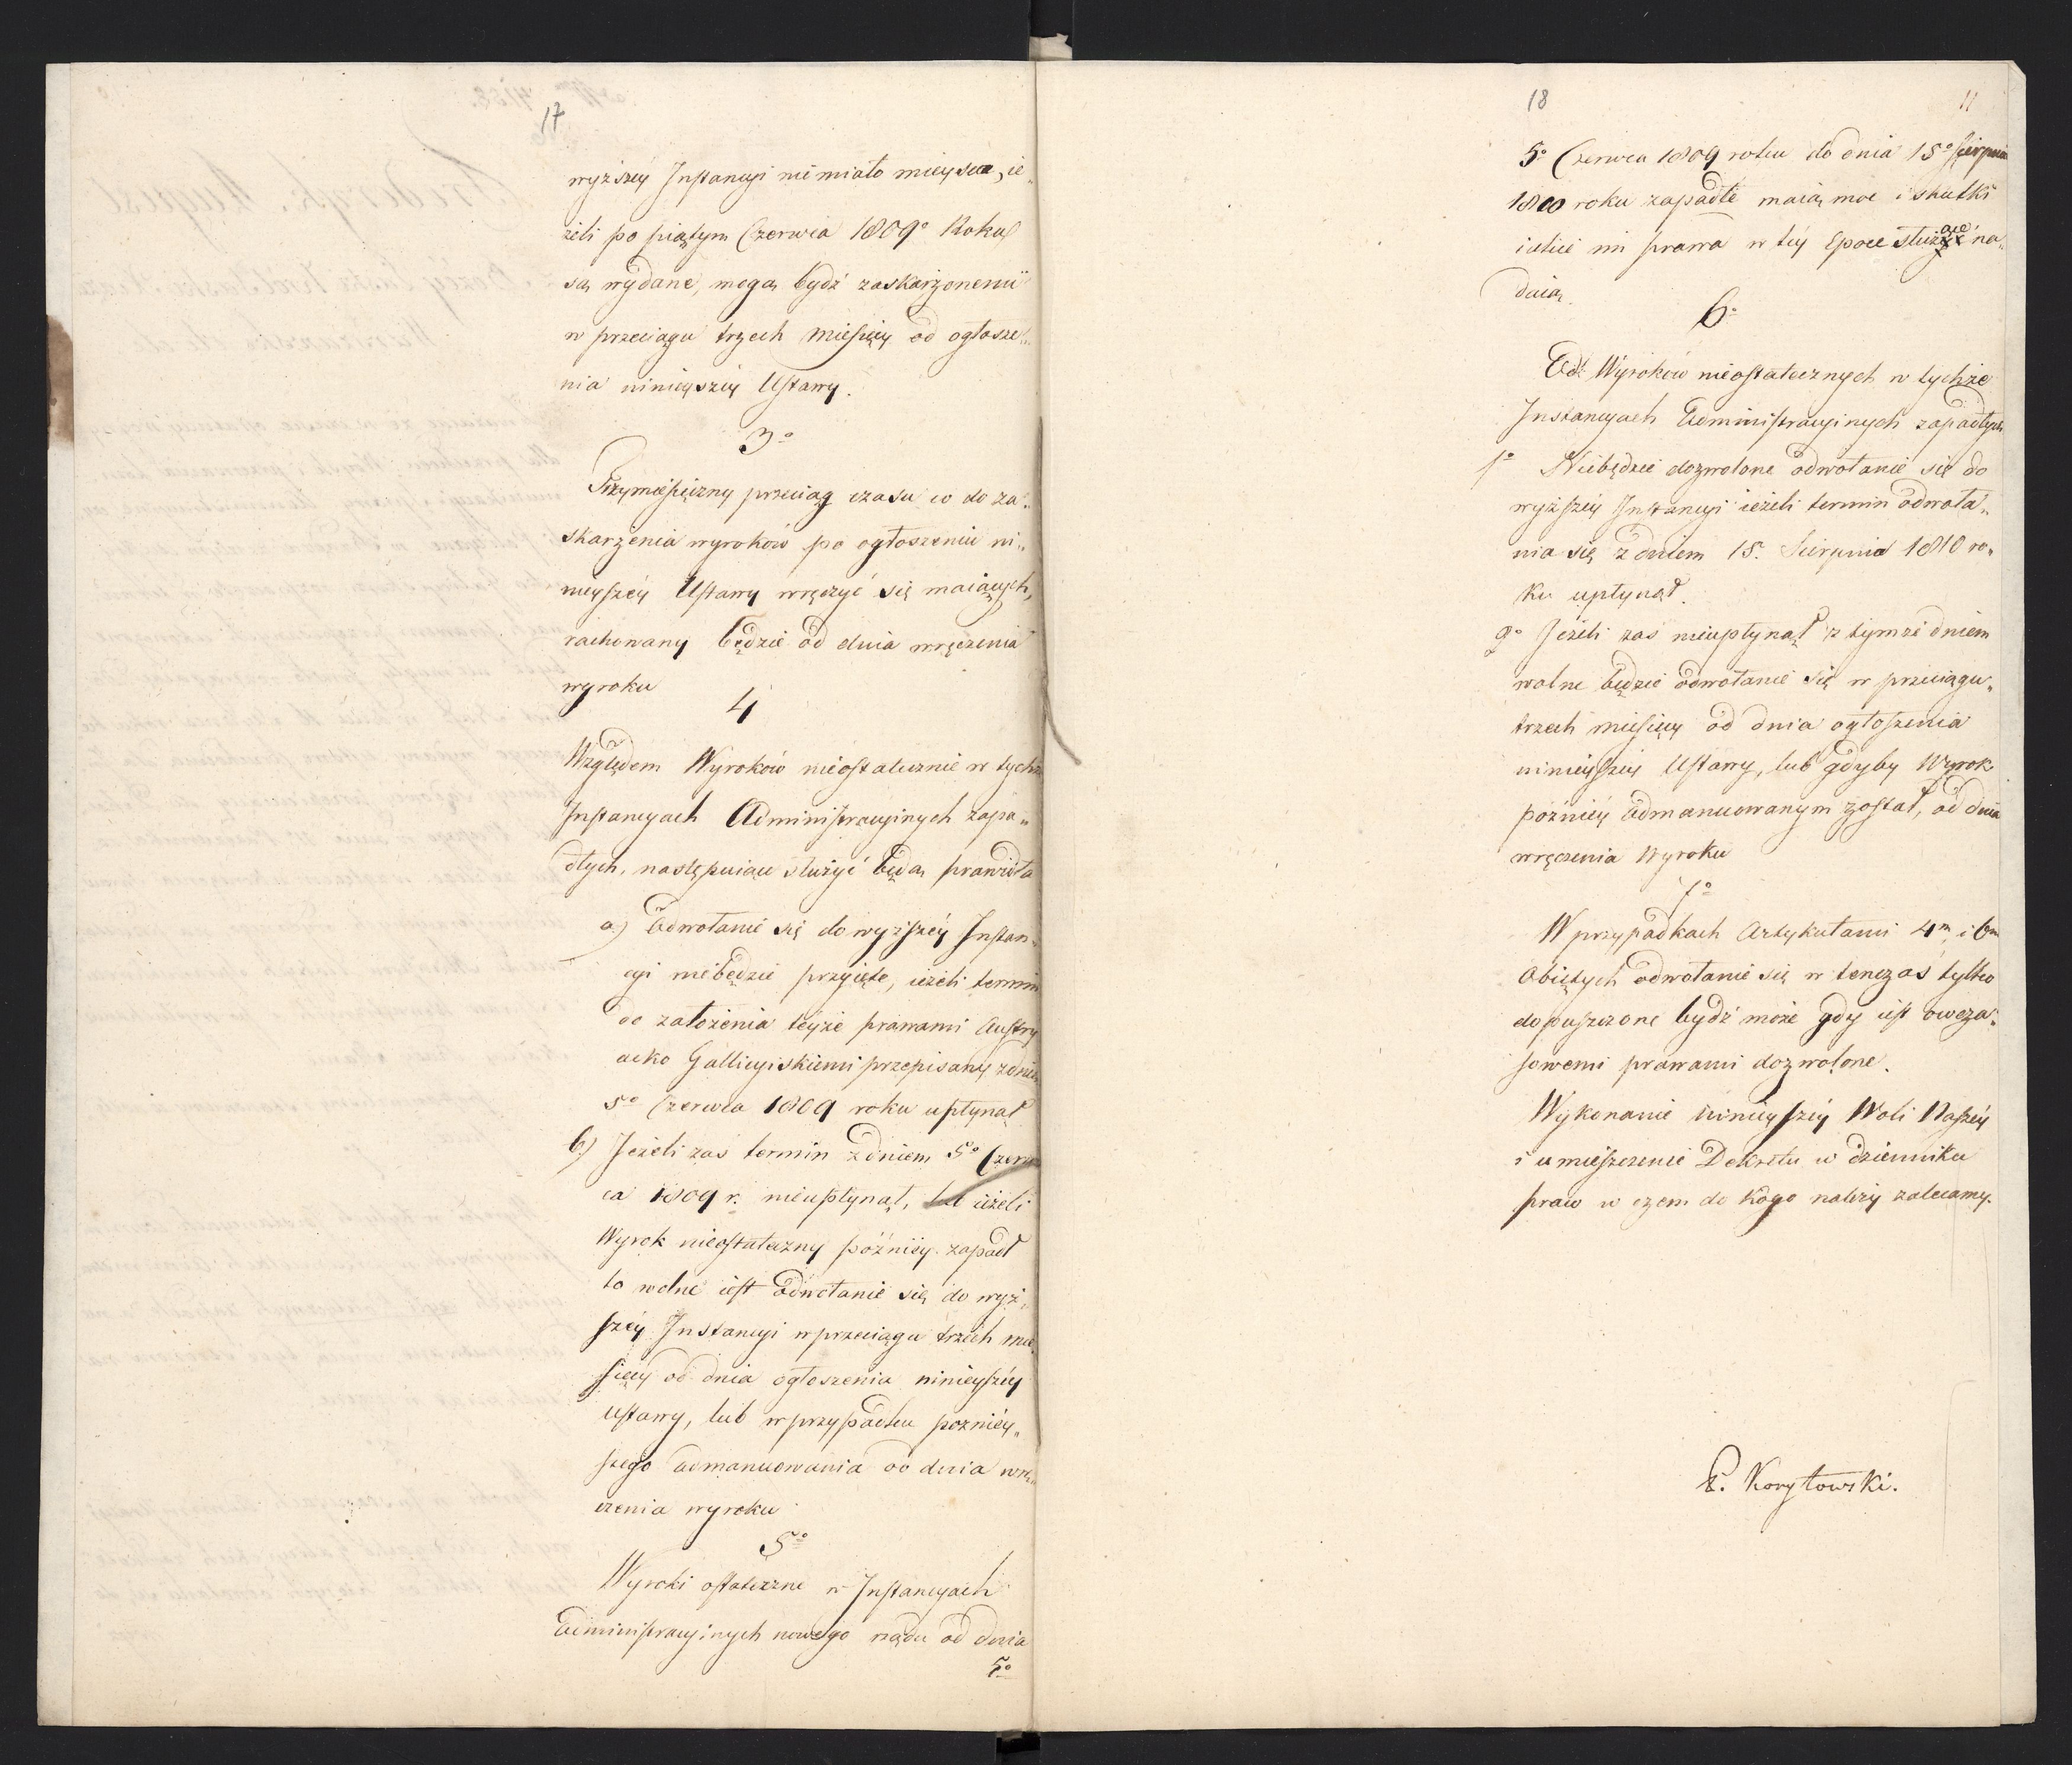 17
wyższéy Instancyi nie miało mieysca, ie„
żeli po piątym Czerwca 1809º Roku
są wydane, mogą bydź zaskarżonemi
w przeciągu trzech miesięcy od ogłosze„
nia ninieyszéy Ustawy.
3º
Trzymiesięczny przeciąg czasu co do za„
skarżenia wyroków po ogłoszeniu ni„
nieyszéy Ustawy wręczyć się maiących,
rachowany będzie od dnia wręczenia
wyroku
4
Względem Wyroków nieostatecznie w tychże
Instancyach Administracyinych zapa„
dłych, następuiące służyć będą prawidła
a.) Odwołanie się do wyższéy Instan„
cyi niebędzie przyięte, ieżeli termin
do założenia téyże prawami Austry
acko Gallicyiskiemi przepisany z dniem
5º Czerwca 1809 roku upłynął
b.) Jeżeli zaś termin z dniem 5º Czerw
ca 1809 r. nieupłynął, lub ieżeli
Wyrok nieostateczny późniéy zapadł
to wolne iest odwołanie się do wyż„
széy Instancyi w przeciągu trzech mie„
sięcy od dnia ogłoszenia ninieyszéy
ustawy, lub w przypadku poźniéy„
szego admanuowania od dnia wrę„
czenia wyroku
5º
Wyroki ostateczne w Instancyach
Administracyinych nowego rządu od dnia
5º
18
11
5º Czerwca 1809 roku do dnia 15º Sierpnia
1810 roku zapadłe maią moc i skutki
iakie im prawa w téy Epoce służące na„
daią.
6º
Od Wyroków nieostatecznych w tychże
Instancyach Administracyinych zapadłych
1º Niebędzie dozwolone odwołanie się do
wyższéy Instancyi ieżeli termin odwoła„
nia się z dniem 15. Sierpnia 1810 ro„
ku upłynął.
2º Jeżeli zaś nieupłynął z tymże dniem
wolne będzie odwołanie się w przeciągu„
trzech miesięcy od dnia ogłoszenia
ninieyszéy Ustawy, lub gdyby Wyrok
poźniéy admanuowanym został, od dnia
wręczenia Wyroku
7º
W przypadkach Artykułami 4m i 6m
obiętych odwołanie się w tenczas tylko
dopuszczone bydź może gdy iest owcza„
sowemi prawami dozwolone.
Wykonanie ninieyszéy Woli Naszéy
i umieszczenie Dekretu w dzienniku
praw w czem do kogo należy zalecamy.
E. Korytowski.